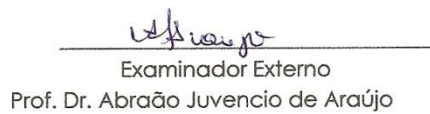 Examinador Externo
Prof. Dr. Abraão Juvencio de Araújo